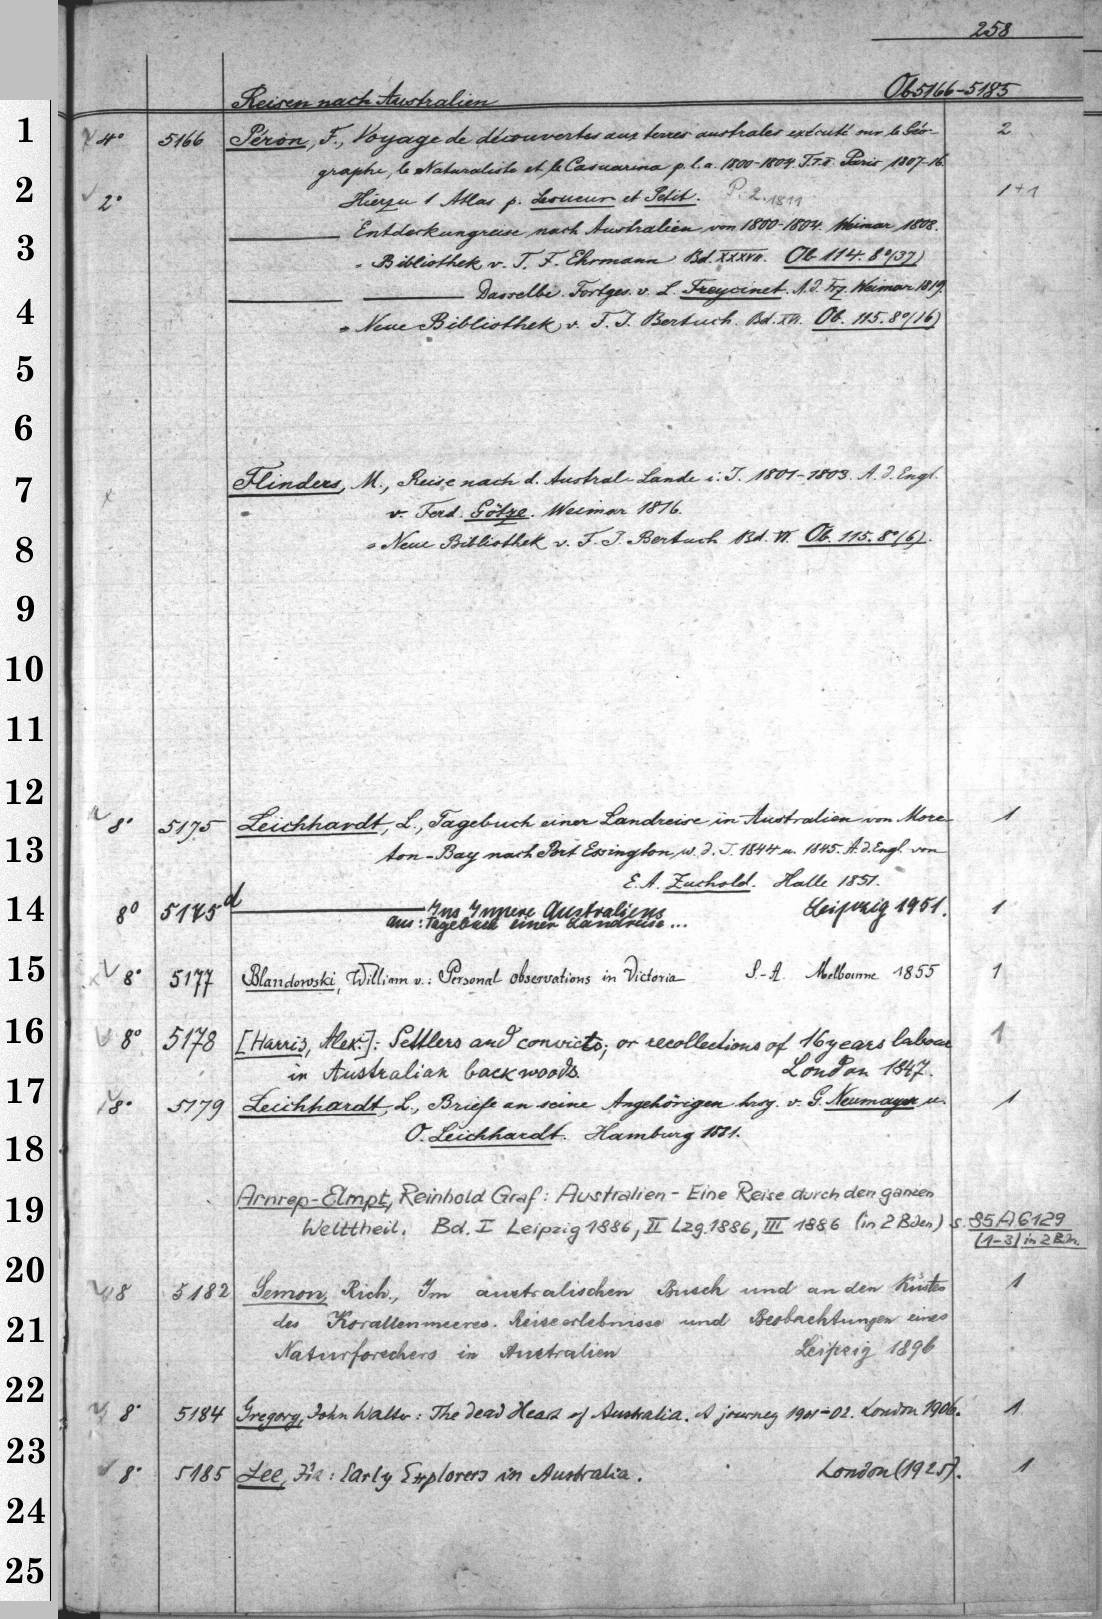 258
Reisen nach Australien Ob 5166-5185
1 4° 5166 Péron, F., Voyage de découvertes aux terres australes exécuté sur le Géo- 2
graphe, le Naturaliste et le Casuarina p. l. a. 1800-1804. T. I-II. Paris 1807-16.
2 2° Hierzu 1 Atlas p. Lesueur et Petit. P. 2. 1811 1+1
3 Entdeckungreise nach Australien von 1800-1804. Weimar 1808.
= Bibliothek v. T. F. Ehrmann Bd. XXXVII. Ob 114. 8°(37)
Dasselbe. Fortges. v. L. Freycinet. A. d. Frz. Weimar 1819.
4 = Neue Bibliothek v. F. J. Bertuch. Bd. XVI. Ob. 115. 8°(16)
5
6
7 Flinders, M., Reise nach d. Austral-Lande i. J. 1801-1803. A. d. Engl.
v. Ferd. Götze. Weimar 1816.
8 = Neue Bibliothek v. F. J. Bertuch Bd. VI. Ob. 115. 8°(6).
9
10
11
12 8° 5175 Leichhardt, L., Tagebuch einer Landreise in Australien von More- 1
13 ton-Bay nach Port Essington w. d. J. 1844 u. 1845. A. d. Engl. von
E. A. Zuchold. Halle 1851.
14 8° 5175 d Ins Innere Australiens Leipzig 1951. 1
aus: Tagebuch einer Landreise...
15 8° 5177 Blandowski, William v.: Personal observations in Victoria S.-A. Melbourne 1855 1
16 8° 5178 [Harris, Alex.]: Settlers and convicts; or recollections of 16 years labour 1
in Australian backwoods. London 1847.
17 8° 5179 Leichhardt, L., Briefe an seine Angehörigen hrsg. v. G. Neumayer u. 1
18 O. Leichhardt. Hamburg 1881.
Arnrep-Elmpt, Reinhold Graf: Australien - Eine Reise durch den ganzen
19 Welttheil. Bd. I Leipzig 1886, II Lzg. 1886, III 1886 (in 2 Bden) s. 85 A 6129
(1-3) in 2 Bdn.
20 8 5182 Semon, Rich., Im australischen Busch und an den Küsten 1
21 des Korallenmeeres. Reiseerlebnisse und Beobachtungen eines
Naturforschers in Australien Leipzig 1896
22 8° 5184 Gregory, John Walter: The dead Heart of Australia. A journey 1901-02. London 1906. 1
23 8° 5185 Lee, Ida: Early Explorers in Australia. London (1925). 1
24
25